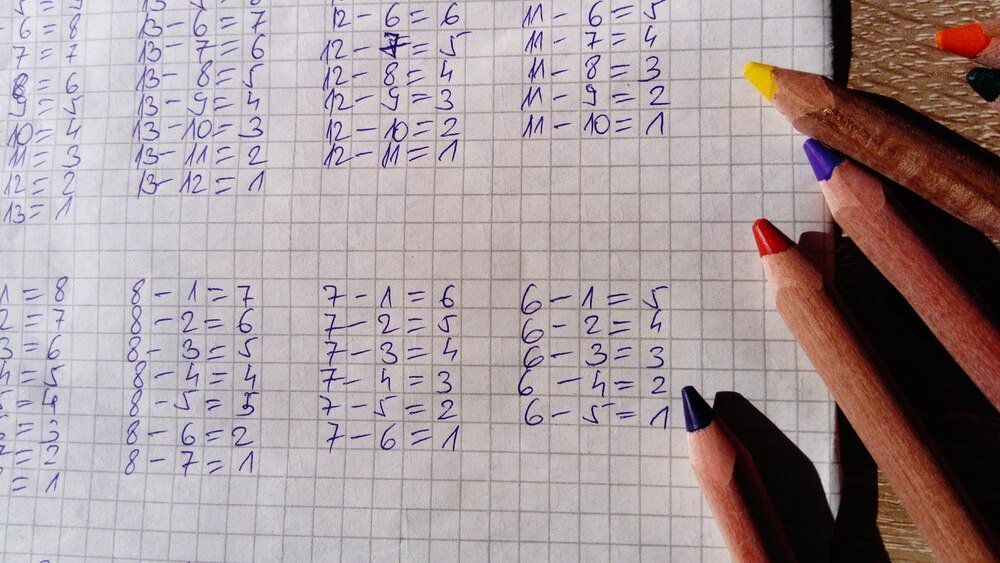 - 6 = 8
7 = 7
8 = 6
9 = 5
10 = 4
11 = 3
12 = 2
13 = 1
13 - 6 = 7
13 - 7 = 6
13 - 8 = 5
13 - 9 = 4
13 - 10 = 3
13 - 11 = 2
13 - 12 = 1
12 - 6 = 6
12 - 7 = 5
12 - 8 = 4
12 - 9 = 3
12 - 10 = 2
12 - 11 = 1
11 - 6 = 5
11 - 7 = 4
11 - 8 = 3
11 - 9 = 2
11 - 10 = 1
1 = 8
2 = 7
3 = 6
4 = 5
5 = 4
= 3
= 2
= 1
8 - 1 = 7
8 - 2 = 6
8 - 3 = 5
8 - 4 = 4
8 - 5 = 3
8 - 6 = 2
8 - 7 = 1
7 - 1 = 6
7 - 2 = 5
7 - 3 = 4
7 - 4 = 3
7 - 5 = 2
7 - 6 = 1
6 - 1 = 5
6 - 2 = 4
6 - 3 = 3
6 - 4 = 2
6 - 5 = 1